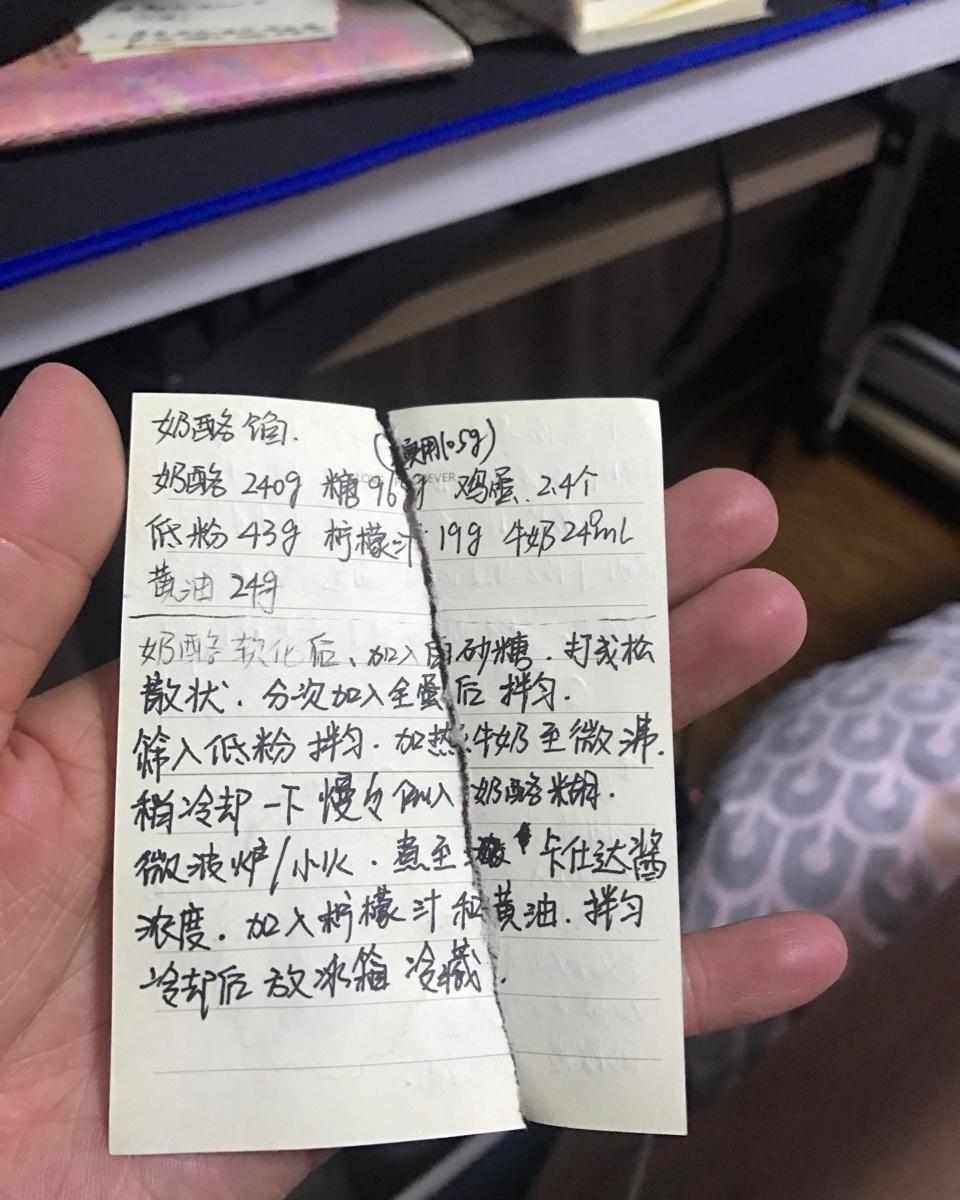 奶酪馅.
(实用105g)
奶酪 240g 糖96g 鸡蛋.2.4个
低粉 43g 柠檬汁 19g 牛奶240mL
黄油 24g
奶酪软化后、加入白砂糖.打成松
散状.分次加入全蛋后拌匀.
筛入低粉拌匀.加热牛奶至微沸.
稍冷却一下慢々倒入奶酪糊.
微波炉/小火.煮至 卡仕达酱
浓度.加入柠檬汁和黄油.拌匀
冷却后放冰箱冷藏.